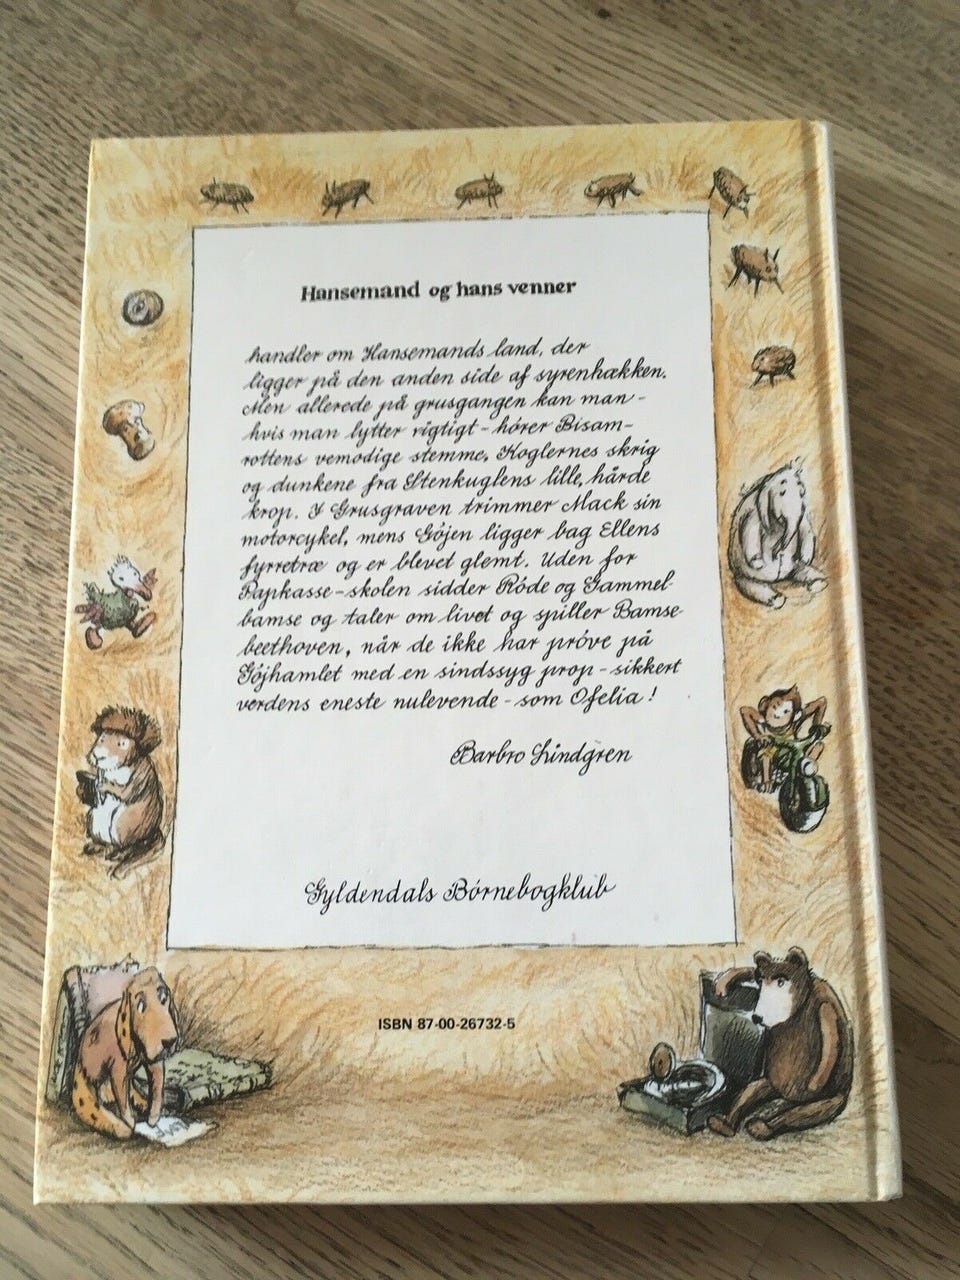 Hansemand og hans venner
handler om Hansemands land, der
ligger på den anden side af syrenhækken.
Men allerede på grusgangen kan man -
hvis man lytter rigtigt - hører Bisam-
rottens vemodige stemme, Koglernes skrig
og dunkene fra Stenkuglens lille, hårde
krop. I Grusgraven trimmer Mack sin
motorcykel, mens Göjen ligger bag Ellens
fyrretræ og er blevet glemt. Uden for
Papkasse-skolen sidder Röde og Gammel-
bamse og taler om livet og spiller Bamse-
beethoven, når de ikke har prøve på
Göjhamlet med en sindssyg prop - sikkert
verdens eneste nulevende - som Ofelia!
Barbro Lindgren
Gyldendals Børnebogklub
ISBN 87-00-26732-5